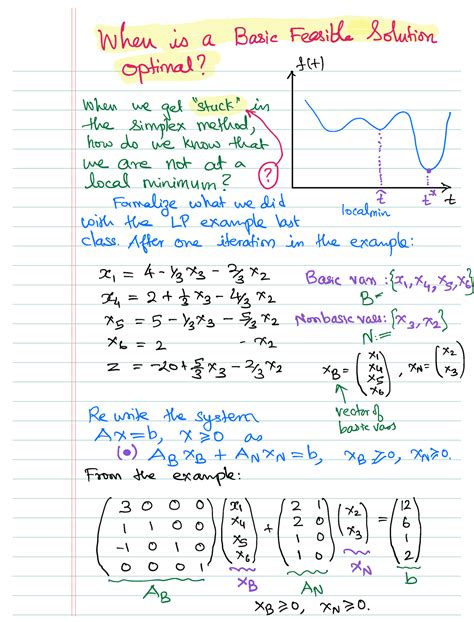 When is a Basic Feasible Solution
Optimal?
f(t)
When we get "stuck" in
the simplex method,
how do we know that
we are not at a
local minimum?
?
t̂
t*
t
localmin
Formalize what we did
with the LP example last
class. After one iteration in the example:
x₁ = 4 - 1/3 x₃ - 2/3 x₂
x₄ = 2 + 1/3 x₃ - 4/3 x₂
x₅ = 5 - 1/3 x₃ - 5/3 x₂
x₆ = 2 - x₂
z = -20 + 5/3 x₃ - 2/3 x₂
Basic vars: {x₁, x₄, x₅, x₆}
B=
Nonbasic vars: {x₃, x₂}
N:=
x_B = (x₁ x₄ x₅ x₆), x_N = (x₂ x₃)
vector of
basic vars
Rewrite the system
Ax=b, x≥0 as
(•) A_B x_B + A_N x_N = b, x_B ≥0, x_N≥0.
From the example:
(3 0 0 0) (x₁) (2 1) (x₂) (12)
(1 1 0 0) (x₄) + (2 0) (x₃) = (6)
(-1 0 1 0) (x₅) (1 0) (1)
(0 0 0 1) (x₆) (1 0) (2)
A_B x_B A_N x_N b
x_B ≥0, x_N ≥0.